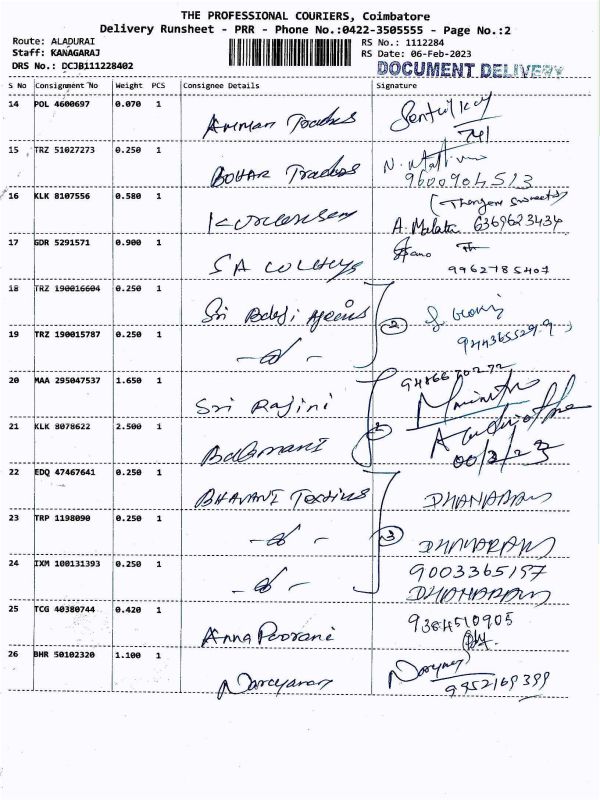 THE PROFESSIONAL COURIERS, Coimbatore
Delivery Runsheet - PRR - Phone No.:0422-3505555 - Page No.:2
Route: ALADURAI
RS No.: 1112284
Staff: KANAGARAJ
RS Date: 06-Feb-2023
DRS No.: DCJB111228402
DOCUMENT DELIVERY
S No Consignment No Weight PCS Consignee Details Signature
14 POL 4600697 0.070 1 Amman Traders
741
15 TRZ 51027273 0.250 1 Bohar Traders N.
9600904513
16 KLK 8107556 0.580 1
A. Malathi 6369623434
17 GDR 5291571 0.900 1 SA
9962785407
18 TRZ 190016604 0.250 1 Sri Balaji Agencies
2
19 TRZ 190015787 0.250 1
20 MAA 295047537 1.650 1 Sri Rajini
21 KLK 8078622 2.500 1 Balamani
22 EDQ 47467641 0.250 1 BHAVANI Textiles DHANARAM
23 TRP 1198090 0.250 1 DHANARAM
3
24 IXM 100131393 0.250 1 9003365157
DHANARAM
25 TCG 40380744 0.420 1 Anna Poorani 9384510905
26 BHR 50102320 1.100 1 Narayanan
9952169399